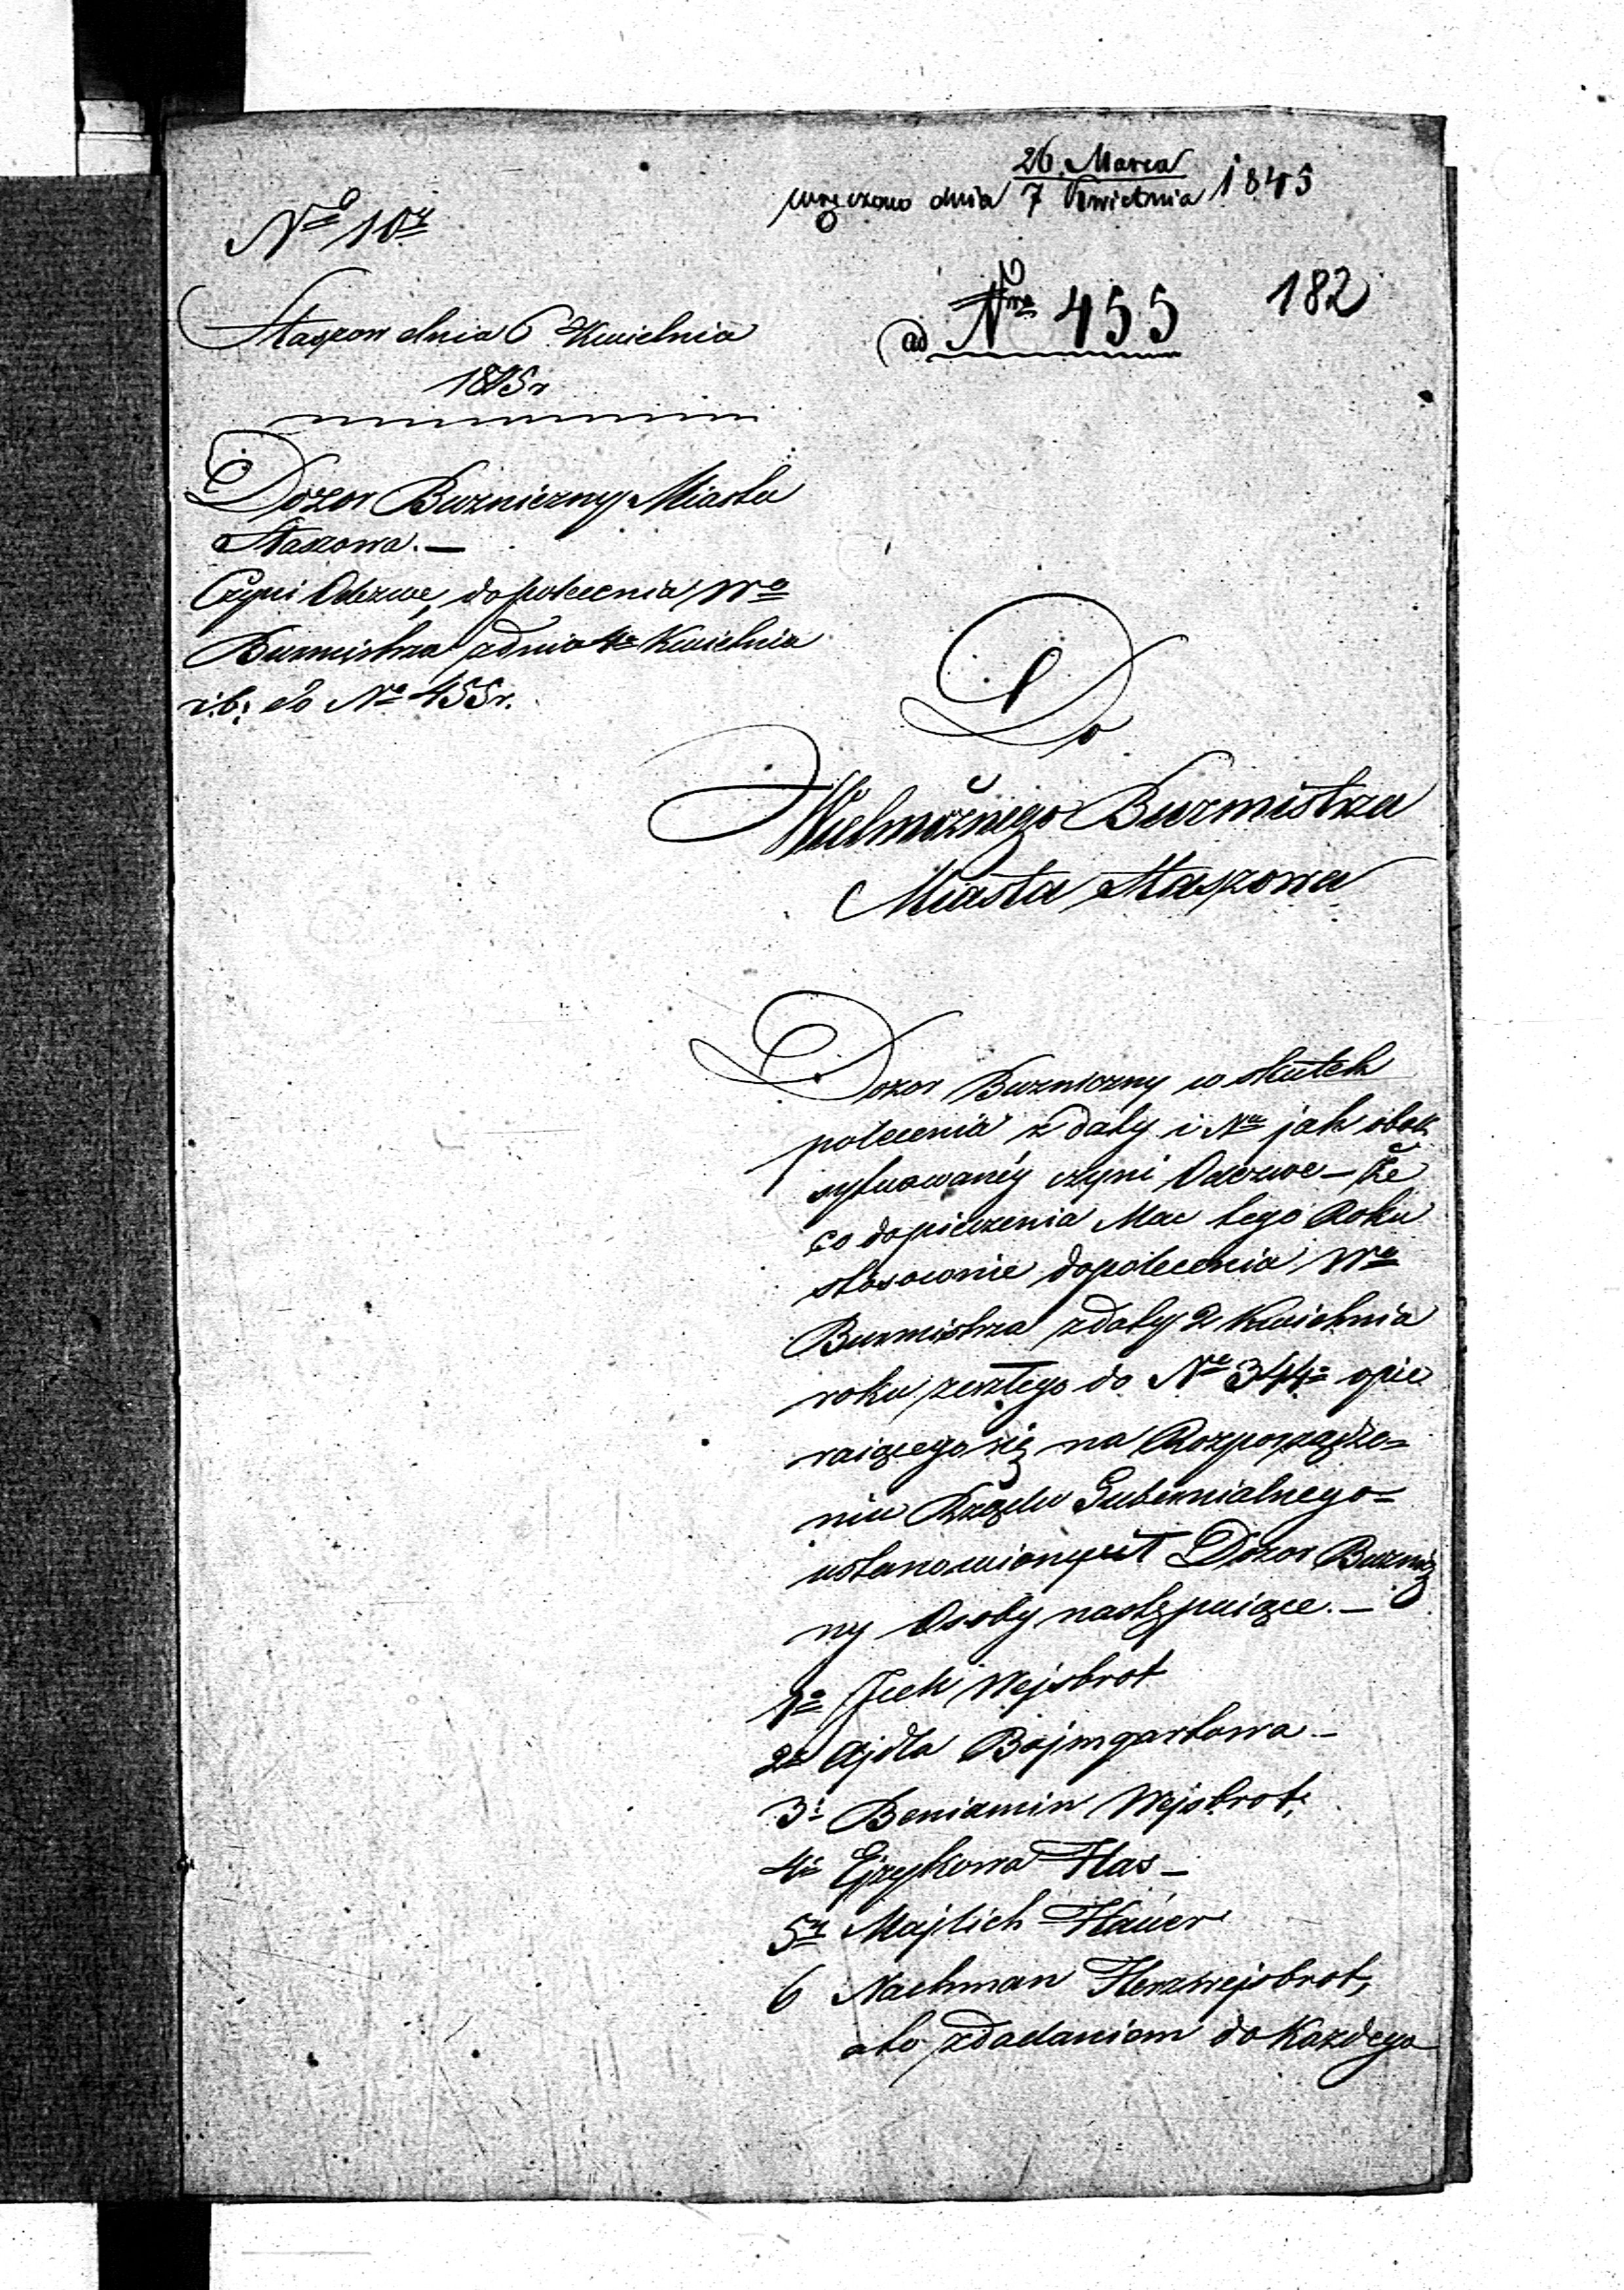 26 Marca
wręczono dnia 7 Kwietnia 1845
No 10
182
ad Nro 455
Staszow dnia 6 Kwietnia
1845r
Dozor Bużniczny Miasta
Staszowa. —
Czyni Odezwę do polecenia Wo
Burmistrza z dnia 4o Kwietnia
r.b. do No 455r.
Do
Wielmożnego Burmistrza
Miasta Staszowa
Dozor Bużniczny w skutek
polecenia z daty i Nru jak obok
cytuowanéy czyni Odezwe — Że
co do pieczenia Mac tego Roku
stósownie do polecenia Wo
Burmistrza z daty 2 Kwietnia
roku zeszłego do No 344 opie
raiącego się na Rozporządze=
niu Rządu Gubernialnego=
Dozor Buznicz
ny Osoby następuiące. —
1o Icek Wejsbrot
2o Ajdla Bajmgartowa —
3o Beniamin Wejsbrot,
4o Ejzykowa Has —
5o Majlich Hauer
6 Nachman Herz Wejsbrot,
a to z dodaniem do Każdego